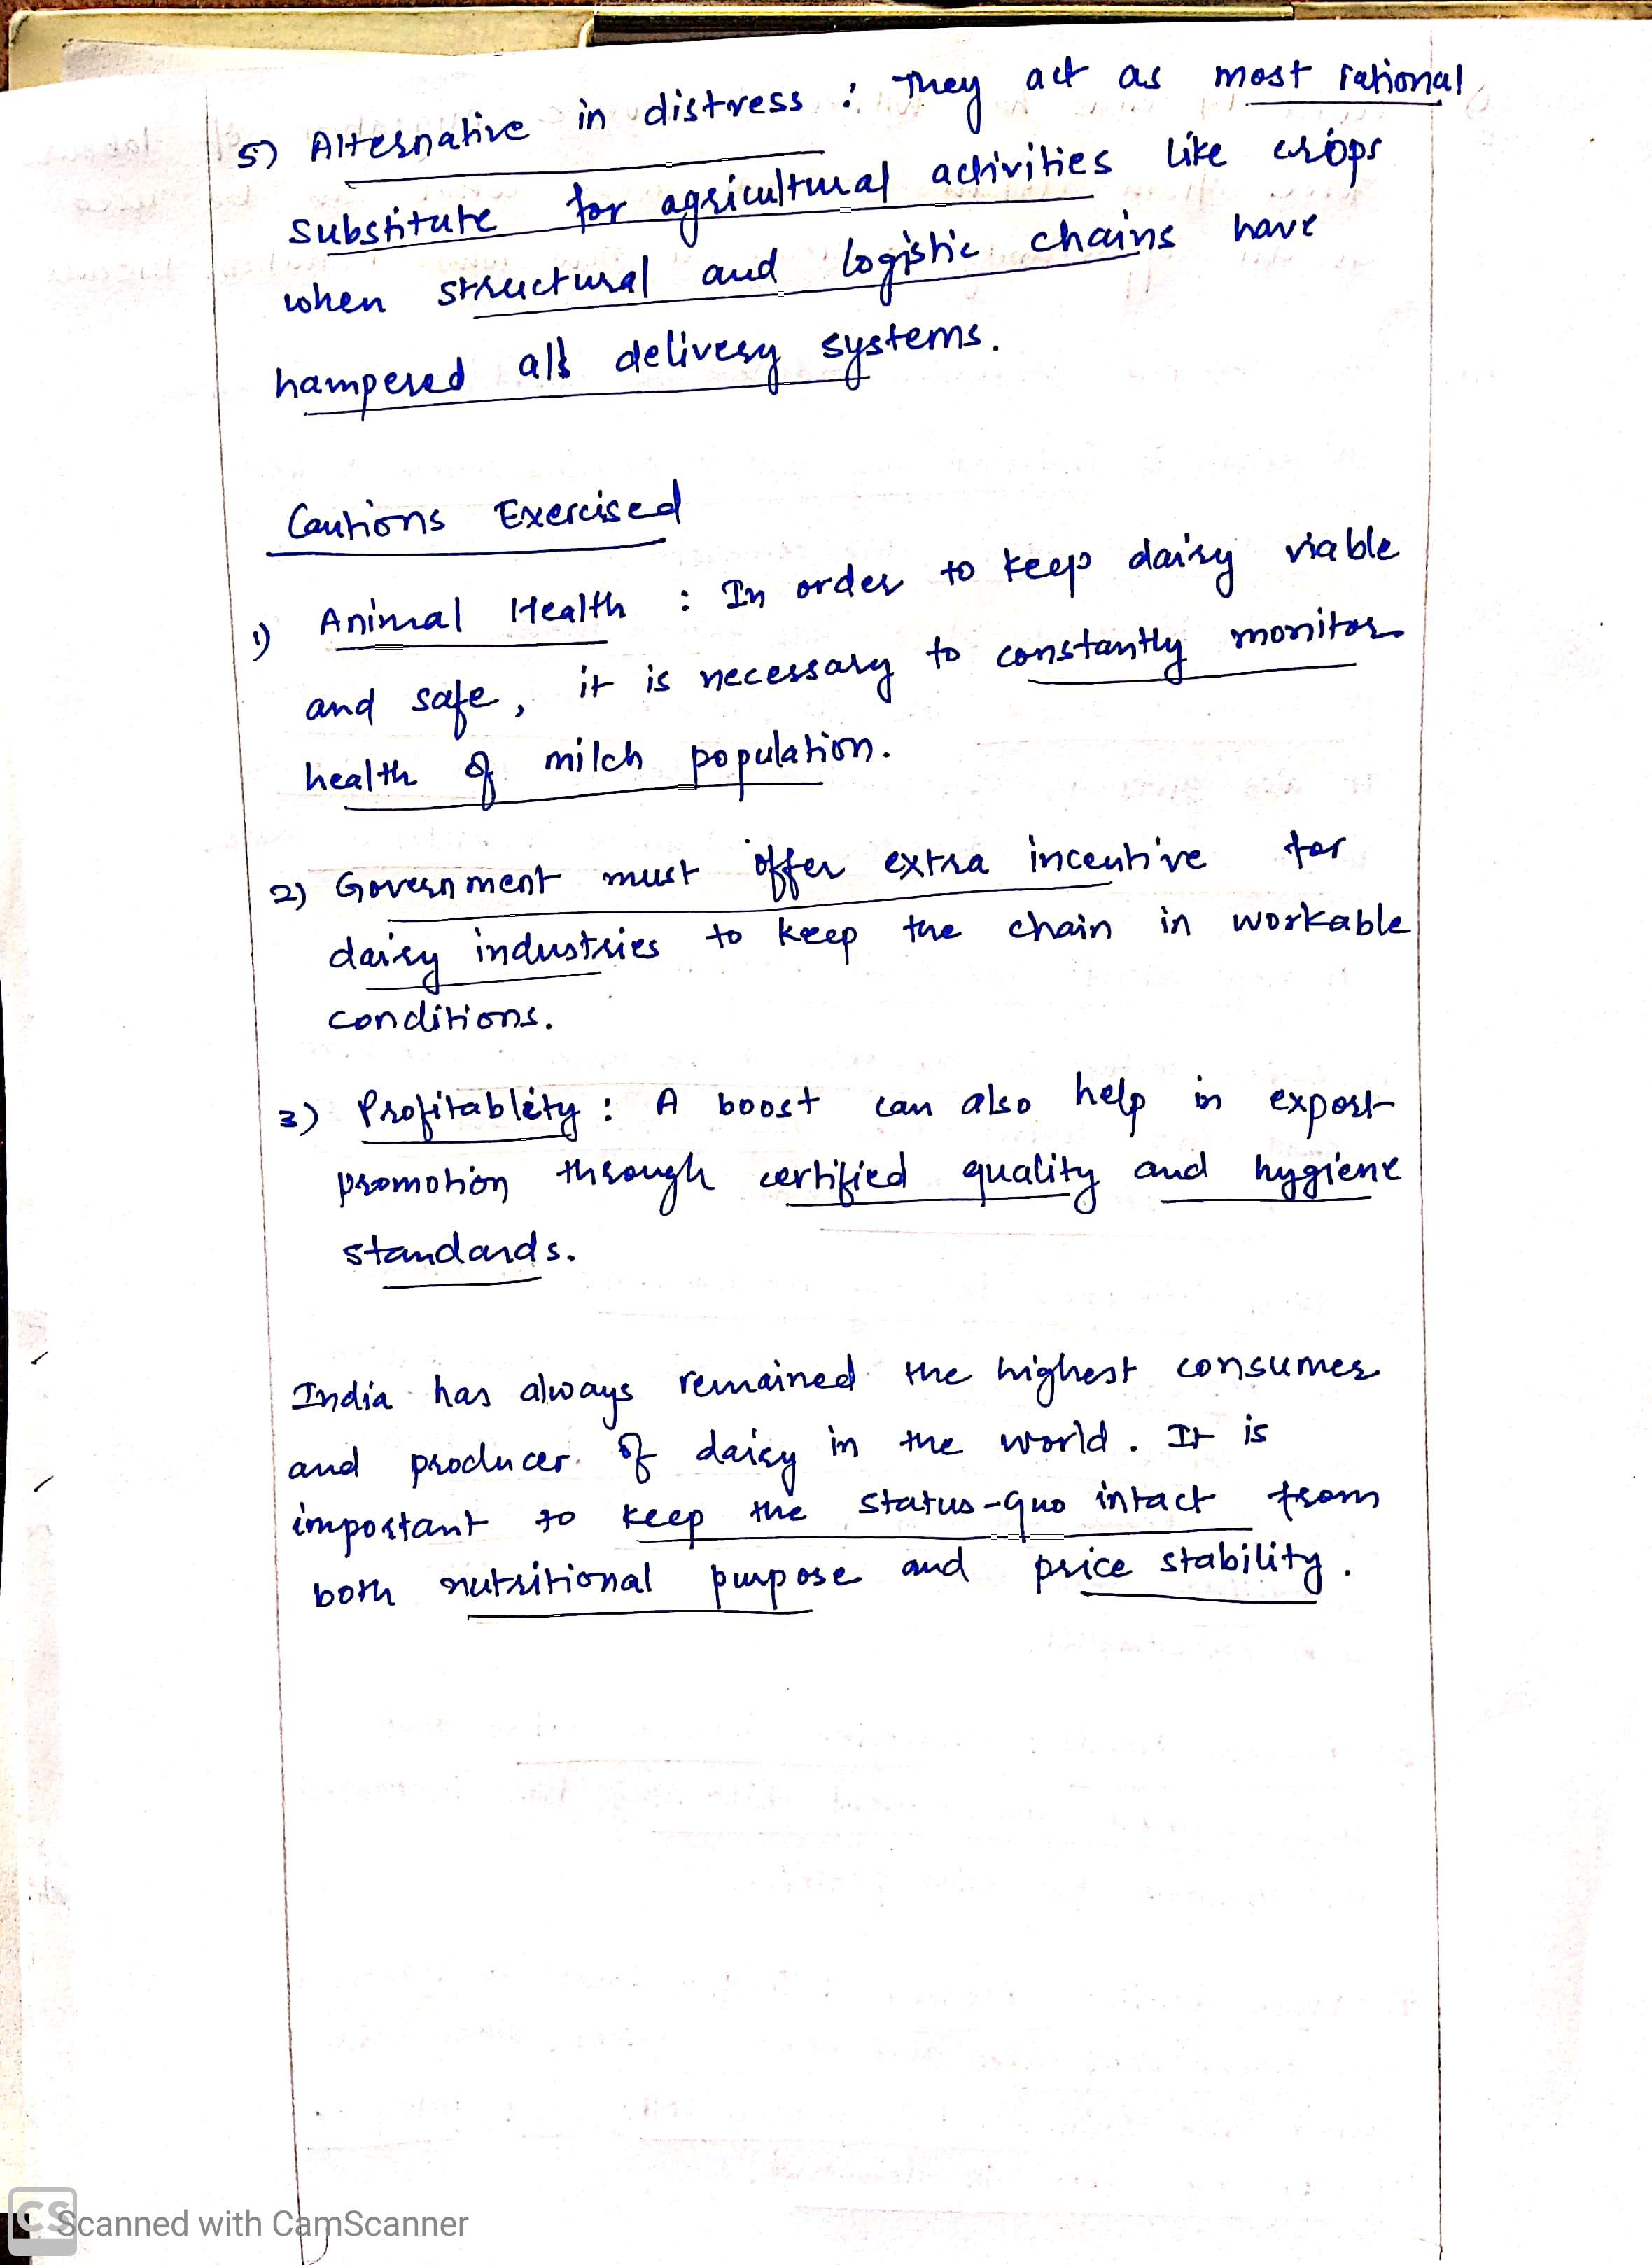 5) Alternative in distress : They act as most rational
substitute for agricultural activities like crops
when structural and logistic chains have
hampered all delivery systems.
Cautions Exercised
1) Animal Health : In order to keep dairy viable
and safe, it is necessary to constantly monitor
health of milch population.
2) Government must offer extra incentive for
dairy industries to keep the chain in workable
conditions.
3) Profitablity : A boost can also help in export
promotion through certified quality and hygiene
standards.
India has always remained the highest consumer
and producer of dairy in the world. It is
important to keep the status-quo intact from
both nutritional purpose and price stability.
CS Scanned with CamScanner